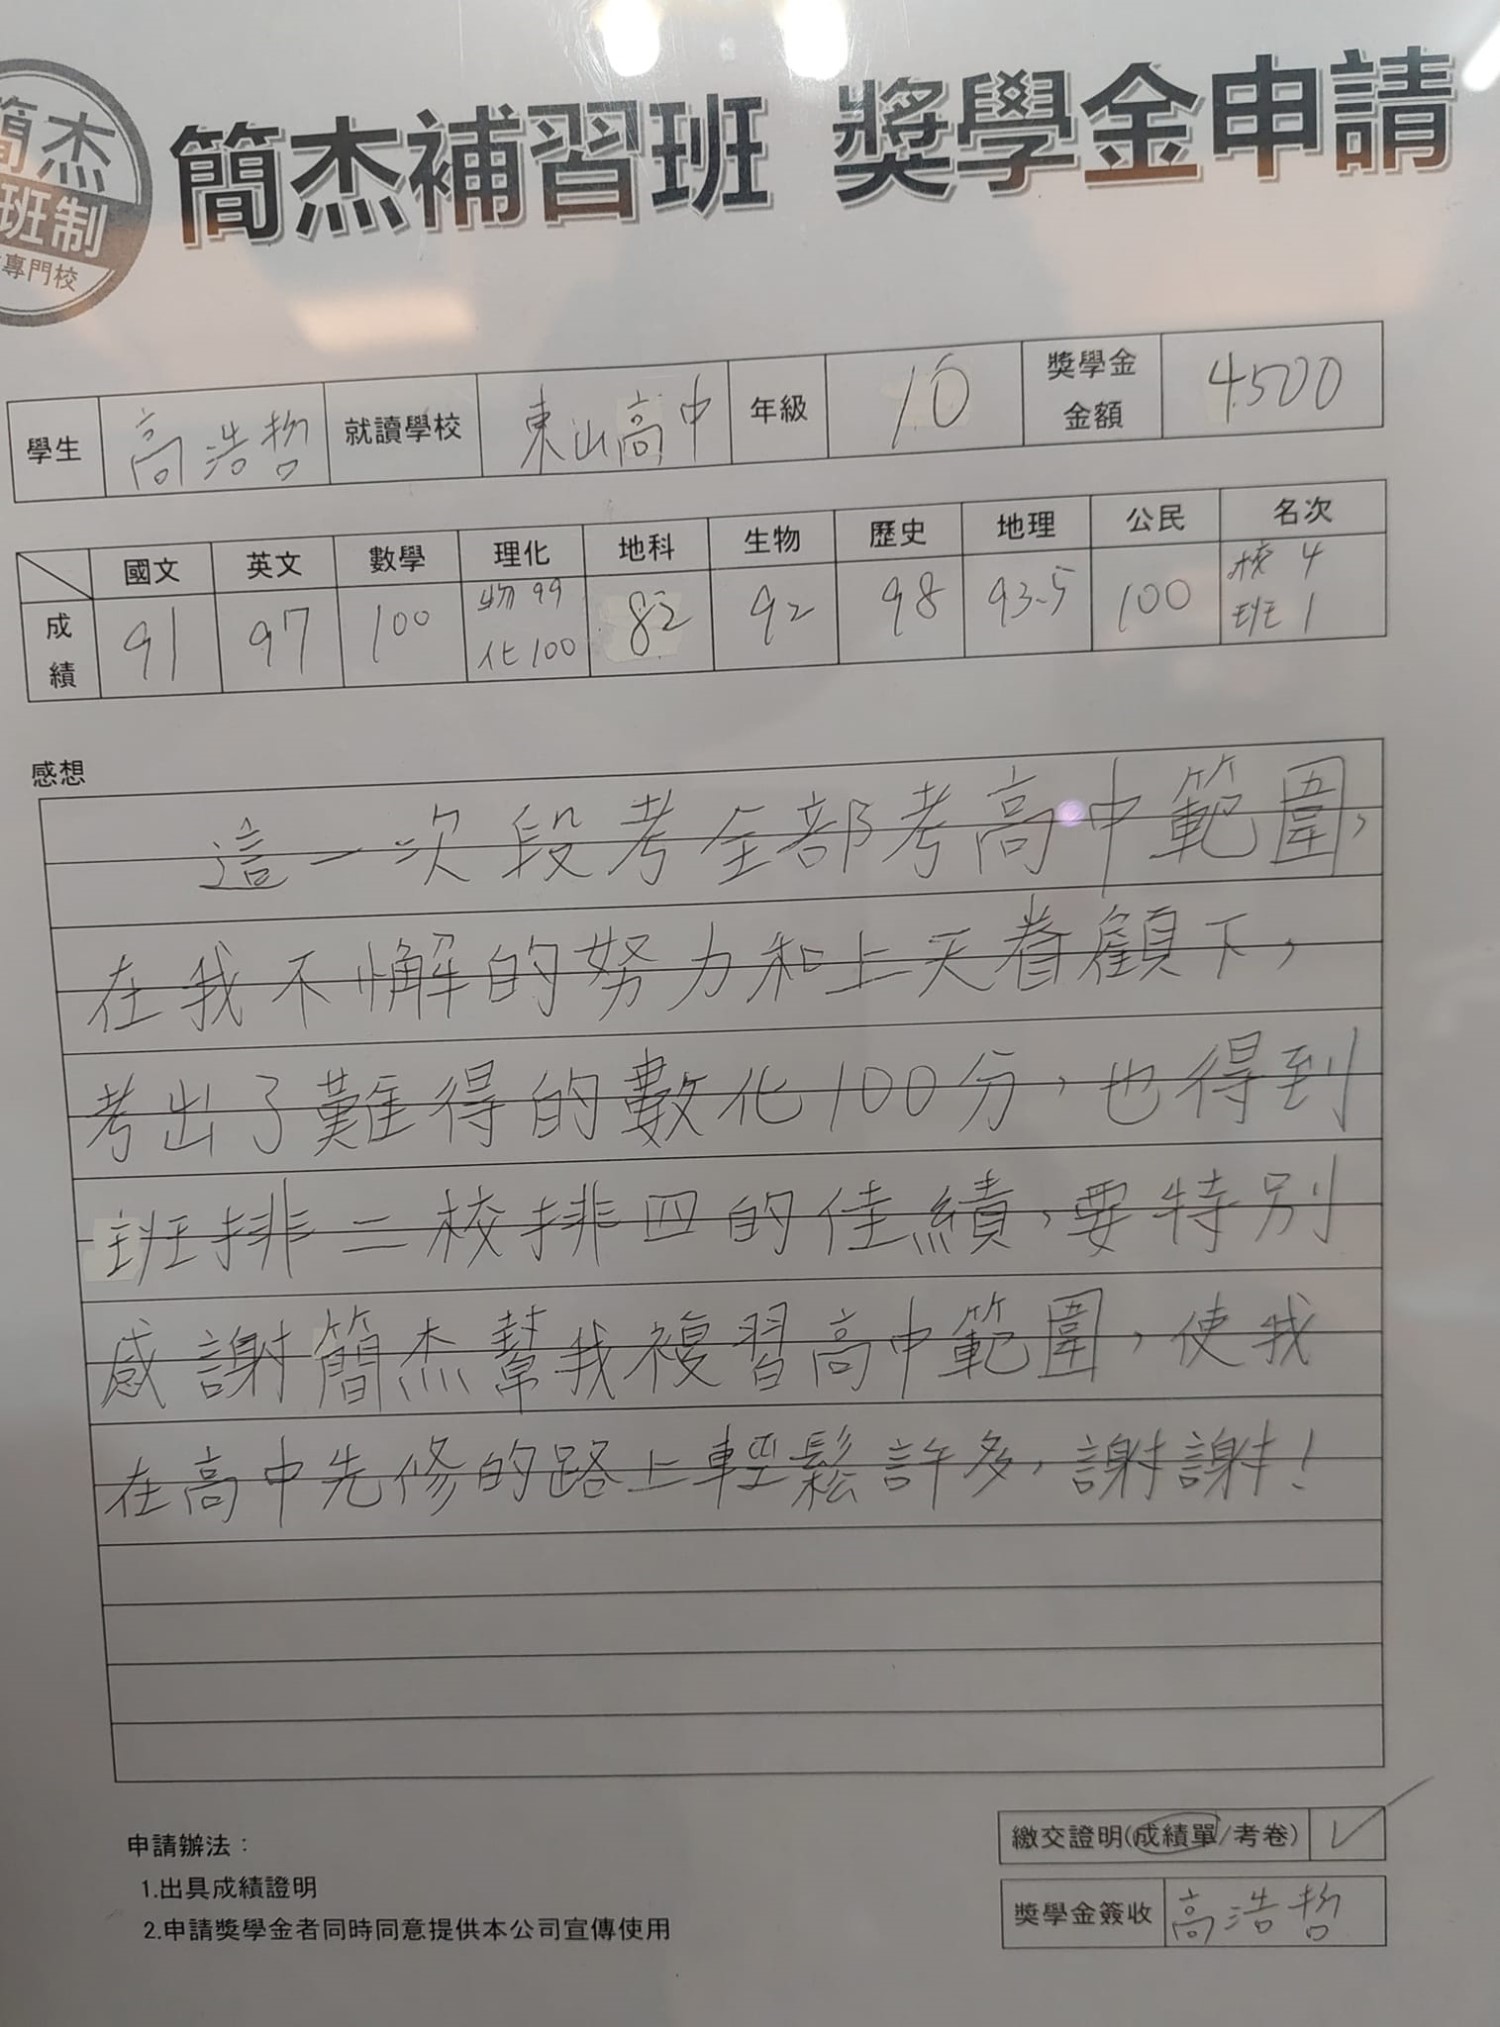 簡杰
班制
專門校
簡杰補習班 獎學金申請
學生 高浩哲 就讀學校 東山高中 年級 10 獎學金金額 4500
國文 英文 數學 理化 地科 生物 歷史 地理 公民 名次
成績 91 97 100 物99 化100 82 92 98 93.5 100 校4 班1
感想
這一次段考全部考高中範圍,
在我不懈的努力和上天眷顧下,
考出了難得的數化100分,也得到
班排二校排四的佳績,要特別
感謝簡杰幫我複習高中範圍,使我
在高中先修的路上輕鬆許多,謝謝!
申請辦法:
1.出具成績證明
2.申請獎學金者同時同意提供本公司宣傳使用
繳交證明(成績單/考卷) ✓
獎學金簽收 高浩哲